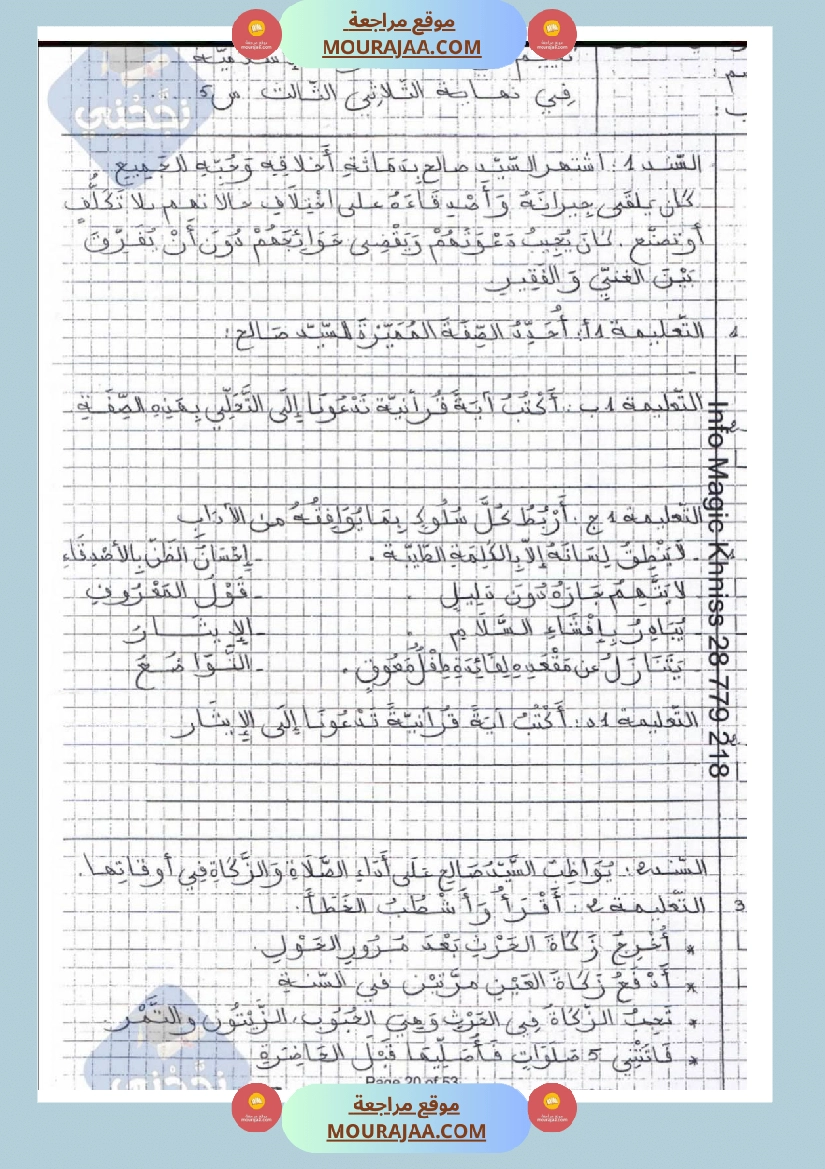 موقع مراجعة
MOURAJAA.COM
في نهاية الثلاثي الثالث س5
السّند 1: اشتهر السّيّد صالح بِدَمَاثَةِ أَخلاقِهِ وَحُبِّه الجَمِيعِ
كان يلقَى جِيرانَهُ وَأَصْدِقَاءَهُ على اخْتِلَافِ حالاتهم بلا تَكَلُّفٍ
أو تصنّع. كَانَ يُجِيبُ دَعْوَتُهُمْ وَيَقْضِي حَوَائِجَهُمْ دُونَ أَنْ يُفَرِّقَ
بَيْنَ الغنيِّ وَالفَقِيرِ
التّعليمة 1أ: أُحَدِّدُ الصِّفَةَ المُمَيِّزَةَ للسّيّد صَالح:
التّعليمة 1ب: أَكْتُبُ آيَةً قُرآنِيّة تَدْعُونَا إِلَى التَّحَلِّي بِهَذِهِ الصِّفَةِ
التّعليمة 1ج: أَرْبُطُ كُلَّ سُلُوكٍ بِمَا يُوَافِقُهُ من الآدَابِ
- لَا يَنْطِقُ لِسَانَهُ إِلاّ بِالكَلِمَةِ الطَّيِّبَة . - إِحْسَانُ الظَّنّ بِالأَصْدِقَاءِ
- لا يَتَّهِمُ جَارَهُ دُونَ دَلِيلٍ . - قَوْلُ المَعْرُوفِ
- يُبَادِرُ بِإِفْشَاءِ السَّلَامِ . - الإِيثَارُ
- يَتَنَازَلُ عن مَقْعَدِهِ لِفَائِدَةِ طِفْلٍ مُعَوقٍ . - التَّوَاضُعَ
التّعليمة 1د: أَكْتُبُ آيَةً قُرَآنِيَّةً تَدْعُونَا إِلَى الإِيثَار
السّند 2: يُوَاظِبُ السَّيّدُ صَالح عَلَى أَدَاءِ الصَّلَاةِ وَالزَّكَاةِ فِي أوقاتِها.
3 التّعليمة 2: أَقْرَأُ وَأَشْطُبُ الخَطَأَ:
* أُخْرِجُ زَكَاةَ الحَرْثِ بَعْدَ مُرُورِ الحَوْلِ.
* أَدْفَعُ زَكَاةَ العَيْنِ مرّتين في السّنةِ
* تَجِبُ الزَّكَاةُ فِي الحَرْثِ وَهِيَ الحُبُوب، الزَّيْتُون والتَّمْر.
* فَاتَتْنِي 5 صَلَوَاتٍ فَأُصَلِّيهَا قَبْلَ الحَاضِرَةِ
Info Magic Khniss 28 779 218
نجّحني
نجّحني
Page 20 of 53
موقع مراجعة
MOURAJAA.COM